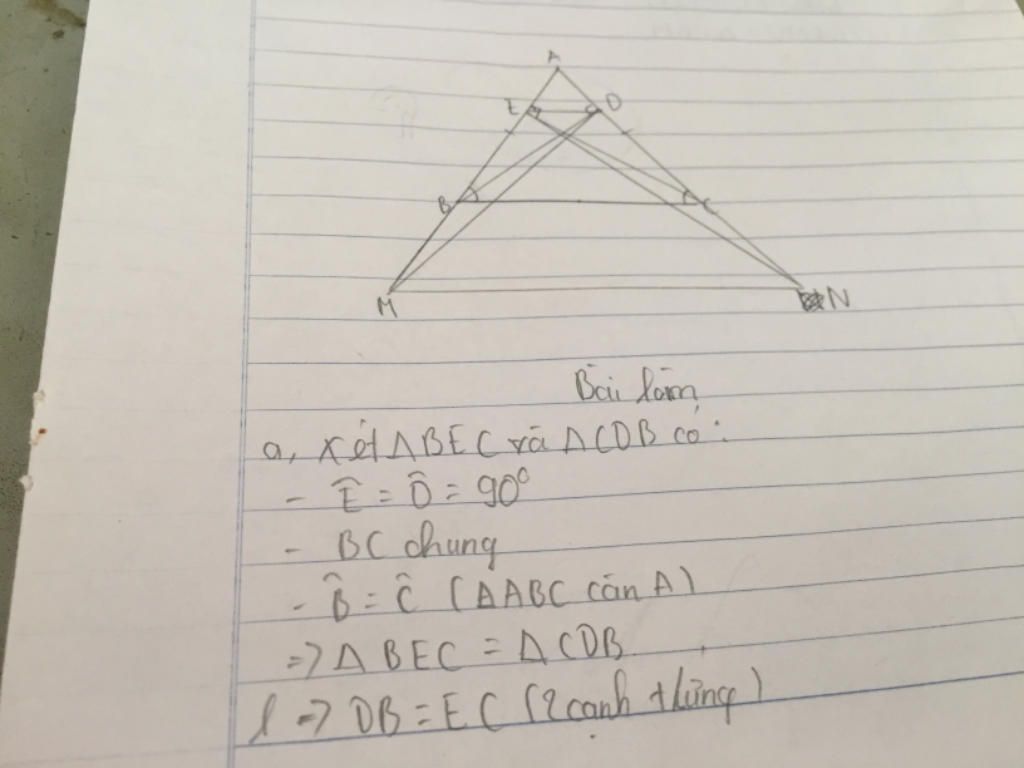 A
E D
B C
M N
Bài làm
a, Xét ΔBEC và ΔCDB có:
- Ê = D̂ = 90°
- BC chung
- B̂ = Ĉ (ΔABC cân A)
=> ΔBEC = ΔCDB
=> DB = EC (2 cạnh tương ứng)